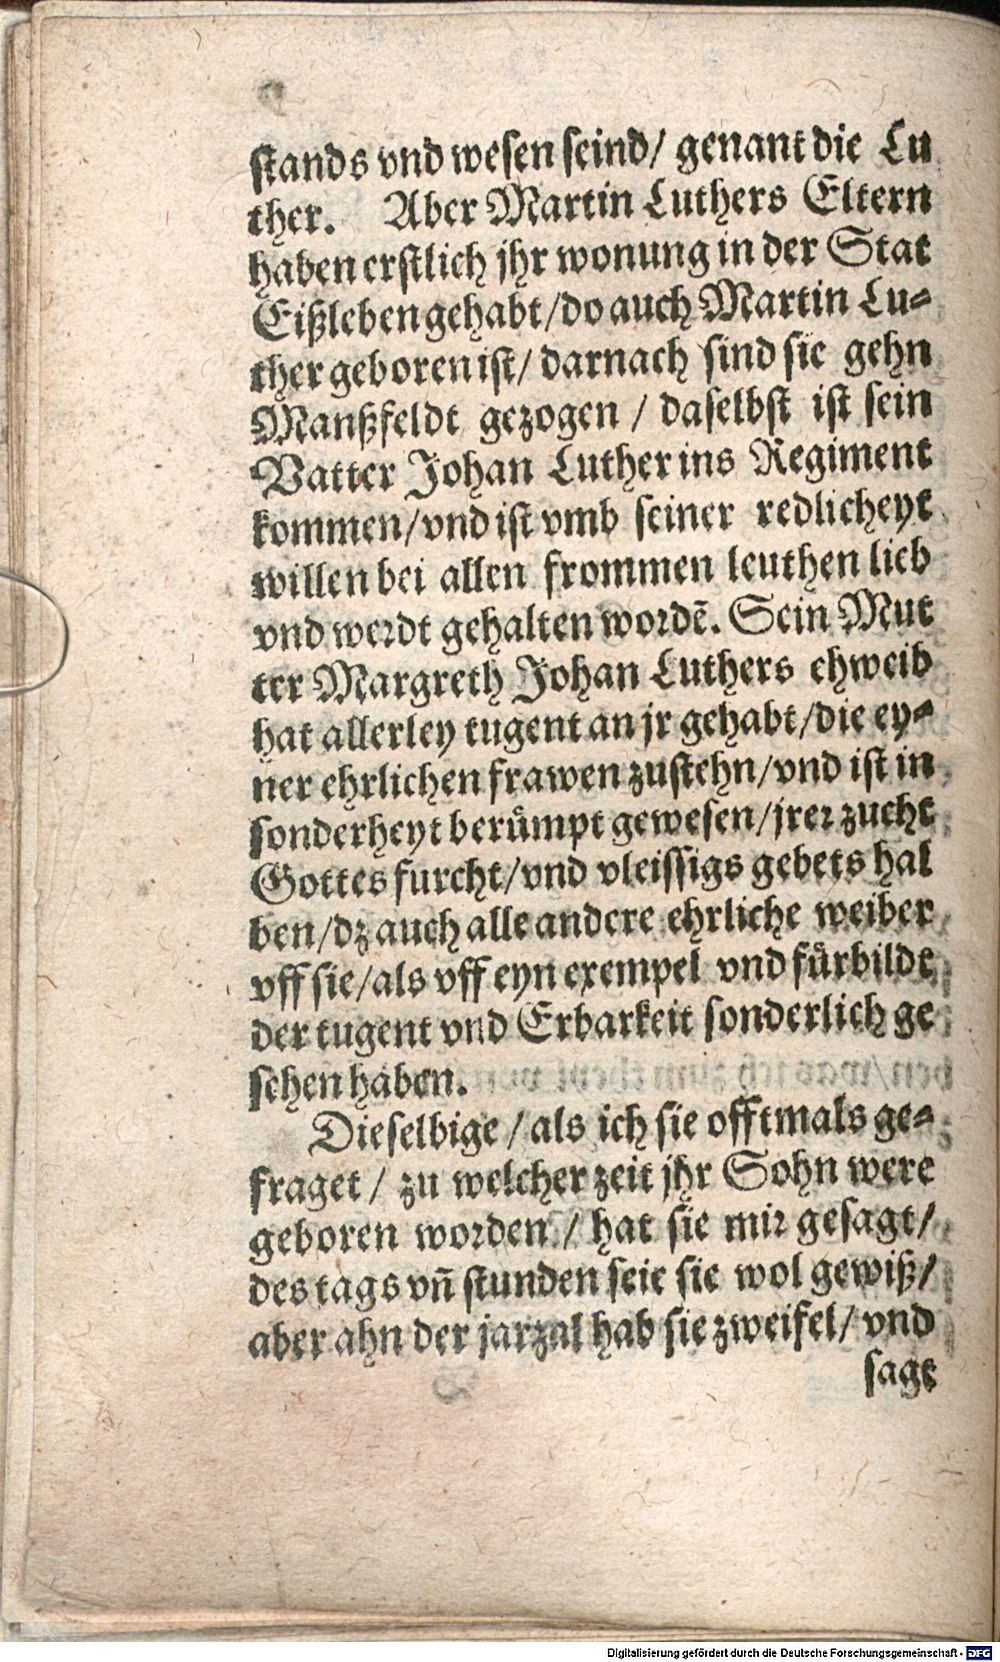 stands vnd wesen seind/ genant die Lu
ther. Aber Martin Luthers Eltern
haben erstlich jhr wonung in der Stat
Eißleben gehabt/do auch Martin Lu=
ther geboren ist/ darnach sind sie gehn
Manßfeldt gezogen / daselbst ist sein
Vatter Johan Luther ins Regiment
kommen/vnd ist vmb seiner redlicheyt
willen bei allen frommen leuthen lieb
vnd werdt gehalten wordē. Sein Mut
ter Margreth Johan Luthers ehweib
hat allerley tugent an jr gehabt/die ey=
ner ehrlichen frawen zustehn/vnd ist in
sonderheyt berůmpt gewesen/jrer zucht
Gottes furcht/vnd vleissigs gebets hal
ben/dz auch alle andere ehrliche weiber
vff sie/als vff eyn exempel vnd fůrbildt
der tugent vnd Erbarkeit sonderlich ge
sehen haben.
Dieselbige / als ich sie offtmals ge=
fraget / zu welcher zeit jhr Sohn were
geboren worden / hat sie mir gesagt/
des tags vñ stunden seie sie wol gewiß/
aber ahn der jarzal hab sie zweifel/ vnd
sagt
Digitalisierung gefördert durch die Deutsche Forschungsgemeinschaft - DFG